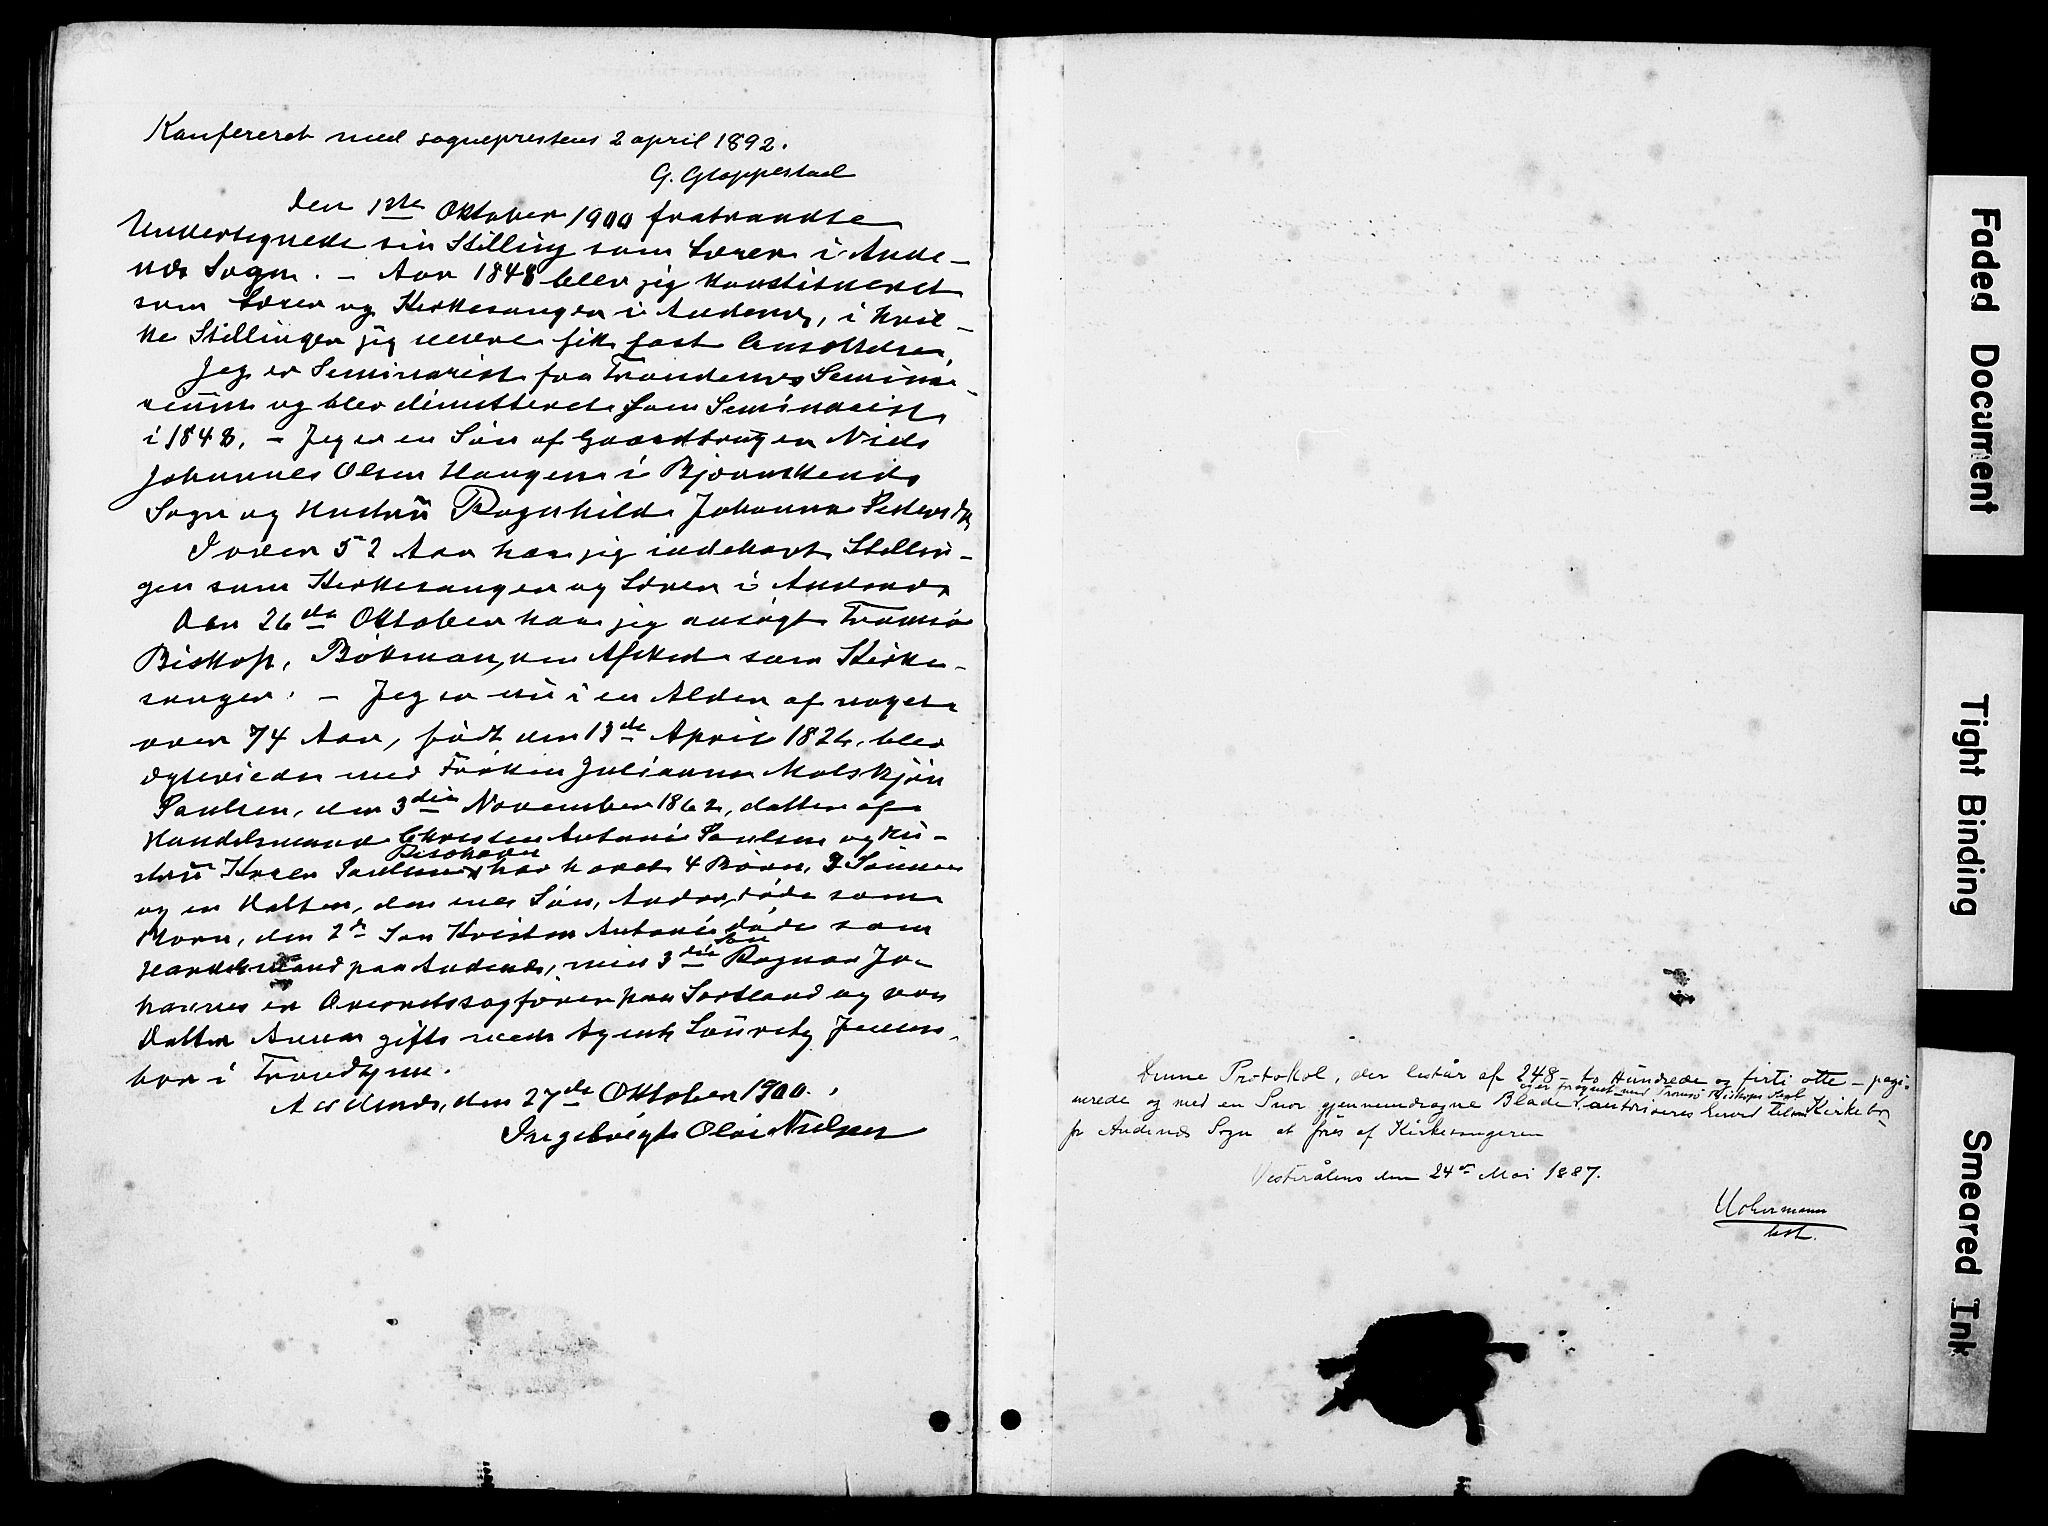 Konfereret med sogneprestens 2 april 1892.
G. Gloppestad
Den 1ste Oktober 1900 fratraadte
Undertegnede sin Stilling som Lærer i Ande-
næs Sogn. - Aar 1848 blev jeg konstitueret
som Lærer og Kirkesanger i Andenæs, i hvil-
ke Stillinger jeg senere fik fast Ansættelse.
Jeg er Seminarist fra Trondenæs Semina-
rium og blev dimitteret som Seminarist
i 1848. - Jeg er en Søn af Gaardbruger Niels
Johannes Olsen Haugen i Bjørnskinds
Sogn og Hustru Ragnhild Johanna Pedersdtr
I over 52 Aar har jeg indehavt Stillin-
gen som Kirkesanger og Lærer i Andenæs
Den 26de Oktober har jeg ansøgt Tromsø
Biskop, Bøkman, om Afsked som Kirke-
sanger. - Jeg er nu i en Alder af noget
over 74 Aar, født den 13de April 1826, blev
ægteviede med Frøken Julianna Bjön
Paulsen, den 3die November 1862, datter af
Handelsmand Christen Antoni Paulsen og Hu-
stru Karen Paulsen, har havt 4 Børn, 3 Sønner
og en Datter, den ene Søn, døde som
Barn, den 2de Søn Kristen Antoni døde som
Handelsmand paa Andenæs, min 3die Søn Ragnar Jo-
hannes er Overretssagfører paa Sortland og vor
Datter Anna gift med Agent Lauritz Jenns-
bor i Trondhjem.
Andenæs, den 27de Oktober 1900.
Ingebrigt Olai Nielsen
Denne Protokol, der består af 248 - to Hundrede og firti otte - pagi-
og er forsynet med Tromsø Biskops Segl
nerede og med en Snor gjennemdragne Blade, autoriseres herved til Kirkebog
for Andenæs Sogn at føres af Kirkesangeren
Vesterålens den 24de Mai 1887.
Uchermann
kst.
Faded Document
Tight Binding
Smeared Ink